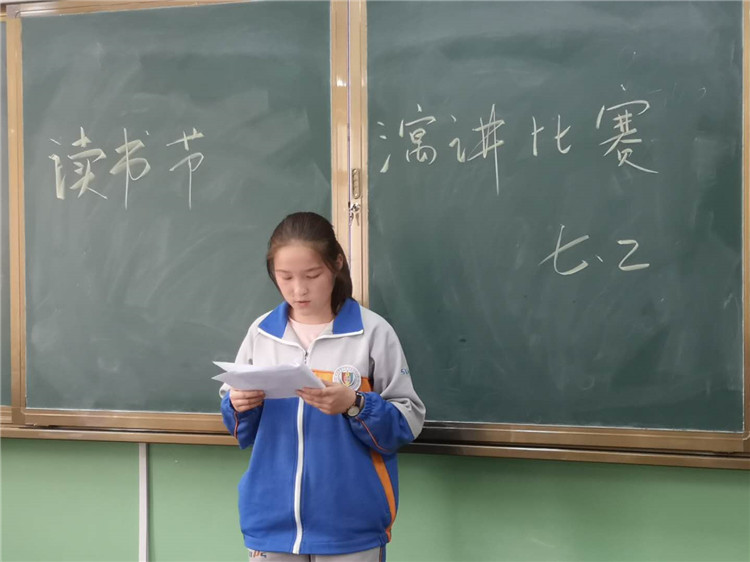 读书节
演讲比赛
七.2